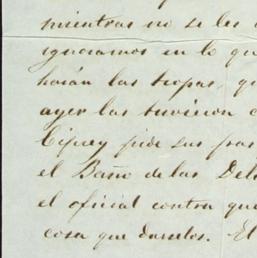 mientras no se les
ignoramos en lo que
harán las tropas, qu
ayer las tuvieron c
Ciprey pide sus pas
el Baño de las Del
el oficial contra que
cosa que darselos. El